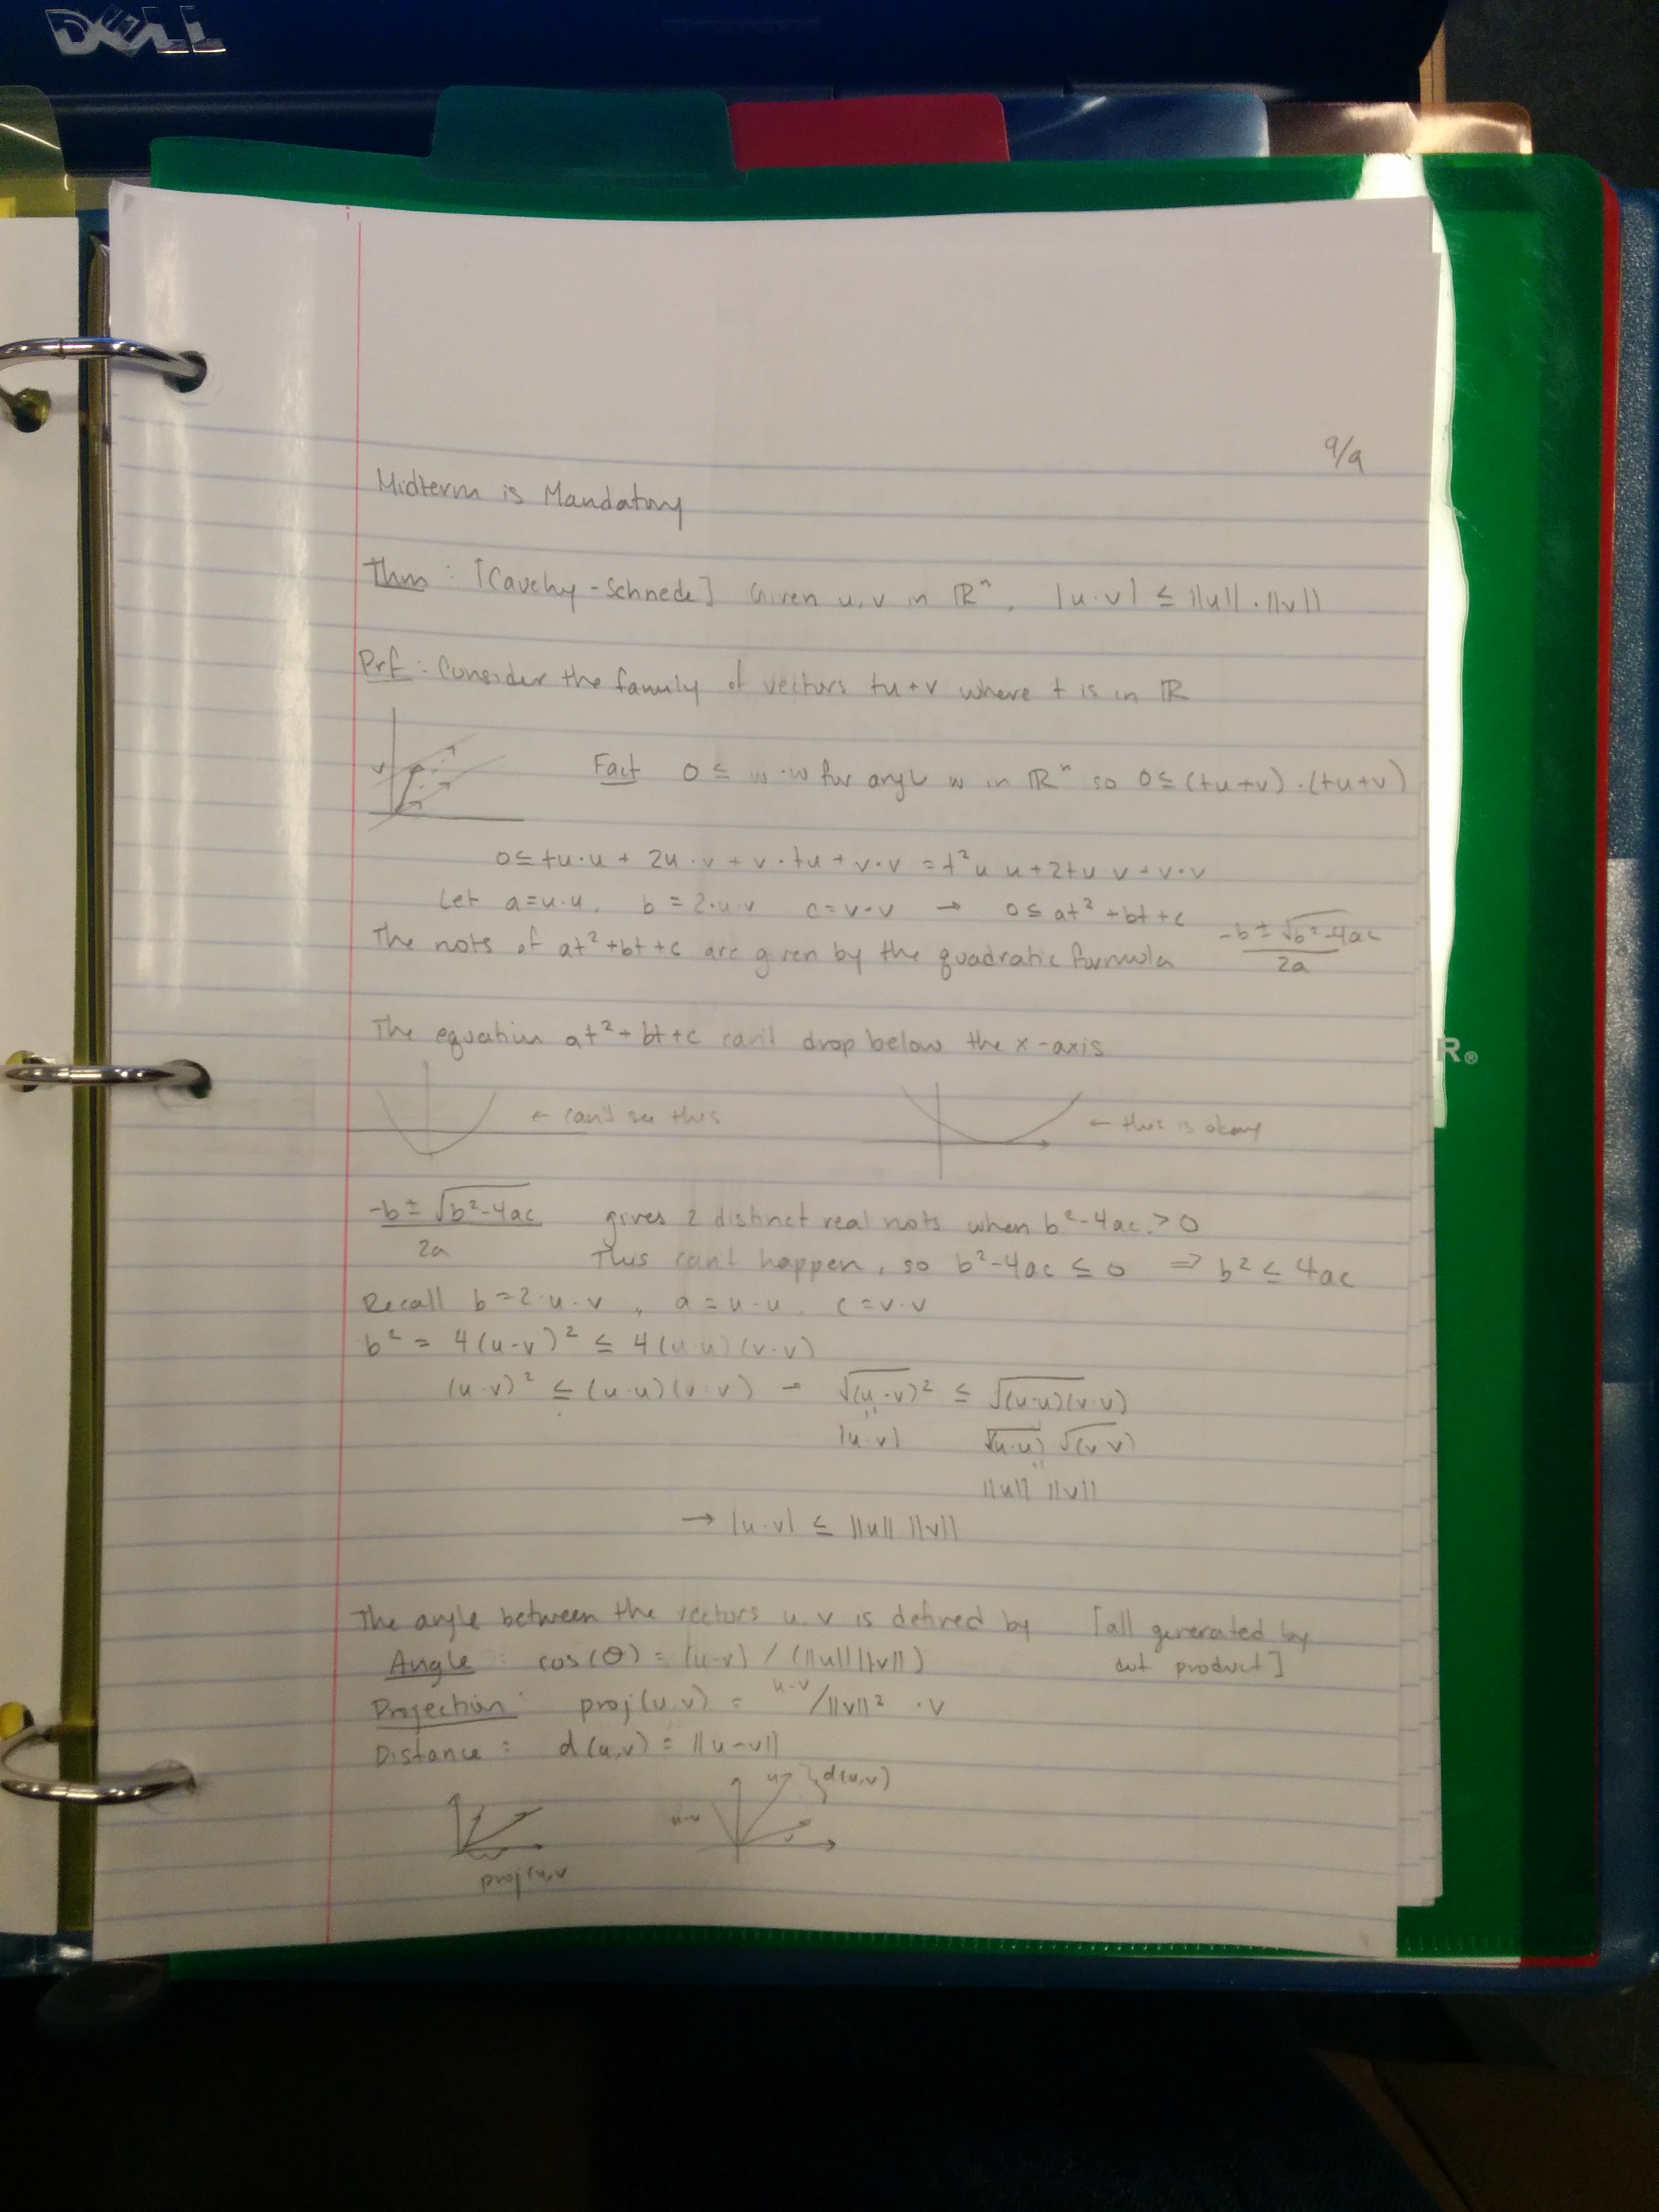 DELL
9/9
Midterm is Mandatory
Thm: [Cauchy-Schnede] Given u,v in ℝⁿ, |u·v| ≤ ||u||·||v||
Prf: Consider the family of vectors tu+v where t is in ℝ
v
Fact 0 ≤ w·w for any w in ℝⁿ so 0 ≤ (tu+v)·(tu+v)
0 ≤ tu·u + 2u·v + v·tu + v·v = t²u u + 2tu v + v·v
Let a=u·u, b=2·u·v c=v·v → 0 ≤ at²+bt+c
The roots of at²+bt+c are given by the quadratic formula -b±√b²-4ac / 2a
The equation at²+bt+c can't drop below the x-axis
R®
← can't see this
← this is okay
-b±√b²-4ac / 2a gives 2 distinct real roots when b²-4ac > 0
This can't happen, so b²-4ac ≤ 0 ⇒ b² ≤ 4ac
Recall b=2·u·v, a=u·u, c=v·v
b² = 4(u·v)² ≤ 4(u·u)(v·v)
(u·v)² ≤ (u·u)(v·v) → √(u·v)² ≤ √(u·u)(v·v)
|u·v| √(u·u) √(v·v)
||u|| ||v||
→ |u·v| ≤ ||u|| ||v||
The angle between the vectors u,v is defined by [all generated by
Angle: cos(θ) = (u·v) / (||u|| ||v||) dot product]
Projection: proj(u,v) = u·v/||v||² · v
Distance: d(u,v) = ||u-v||
u d(u,v)
u-v v
proj(u,v